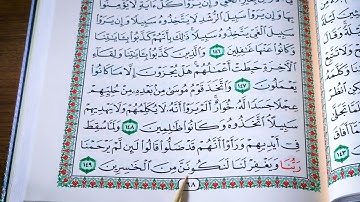 بِهَا وَإِن يَرَوْا۟ سَبِيلَ ٱلرُّشْدِ لَا يَتَّخِذُوهُ سَبِيلًا وَإِن يَرَوْا۟
سَبِيلَ ٱلْغَىِّ يَتَّخِذُوهُ سَبِيلًا ذَٰلِكَ بِأَنَّهُمْ كَذَّبُوا۟ بِـَٔايَٰتِنَا
وَكَانُوا۟ عَنْهَا غَٰفِلِينَ ١٤٦ وَٱلَّذِينَ كَذَّبُوا۟ بِـَٔايَٰتِنَا وَلِقَآءِ
ٱلْـَٔاخِرَةِ حَبِطَتْ أَعْمَٰلُهُمْ هَلْ يُجْزَوْنَ إِلَّا مَا كَانُوا۟
يَعْمَلُونَ ١٤٧ وَٱتَّخَذَ قَوْمُ مُوسَىٰ مِنۢ بَعْدِهِۦ مِنْ حُلِيِّهِمْ
عِجْلًا جَسَدًا لَّهُۥ خُوَارٌ أَلَمْ يَرَوْا۟ أَنَّهُۥ لَا يُكَلِّمُهُمْ وَلَا يَهْدِيهِمْ
سَبِيلًا ٱتَّخَذُوهُ وَكَانُوا۟ ظَٰلِمِينَ ١٤٨ وَلَمَّا سُقِطَ
فِىٓ أَيْدِيهِمْ وَرَأَوْا۟ أَنَّهُمْ قَدْ ضَلُّوا۟ قَالُوا۟ لَئِن لَّمْ يَرْحَمْنَا
رَبُّنَا وَيَغْفِرْ لَنَا لَنَكُونَنَّ مِنَ ٱلْخَٰسِرِينَ ١٤٩